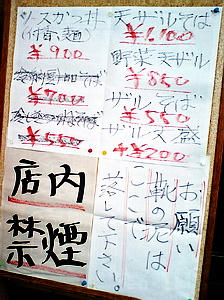 ソースかつ丼
(付合麺)
¥900
¥700
¥550
天ザルそば
¥1,100
野菜天ザル
¥850
ザルそば
¥550
ザル大盛
+¥200
お願い
靴の泥は
ここで
落し下さい。
店内
禁煙